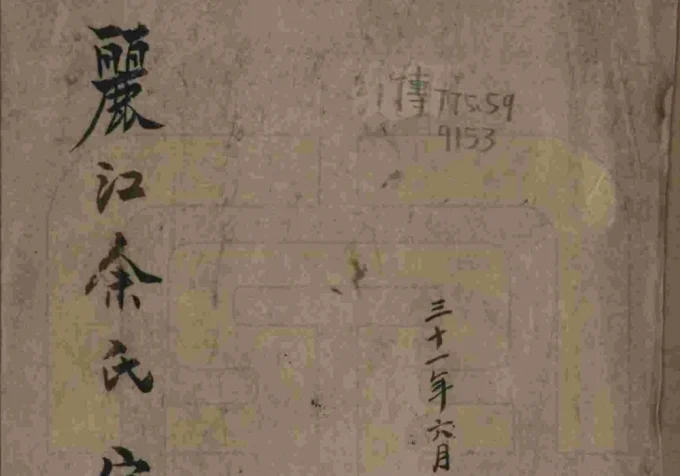 麗江余氏宗
傳 775.59
9153
三十一年六月